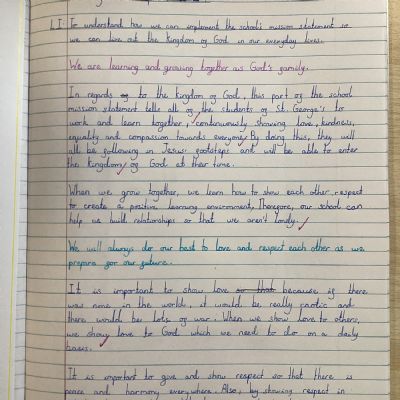 L.I: To understand how we can implement the school's mission statement so
we can live out the Kingdom of God in our everyday lives.
We are learning and growing together as God's family.
In regards to the kingdom of God, this part of the school
mission statement tells all of the students of St. George's to
work and learn together, continuously showing love, kindness,
equality and compassion towards everyone. By doing this, they will
all be following in Jesus' footsteps and will be able to enter
the Kingdom of God at their time.
When we grow together, we learn how to show each other respect
to create a positive learning environment. Therefore, our school can
help us build relationships so that we aren't lonely.
We will always do our best to love and respect each other as we
prepare for our future.
It is important to show love so that because if there
was none in the world, it would be really caotic and
there would be lots of war. When we show love to others,
we show love to God which we need to do on a daily
basis.
It is important to give and show respect so that there is
peace and harmony everywhere. Also, by showing respect in